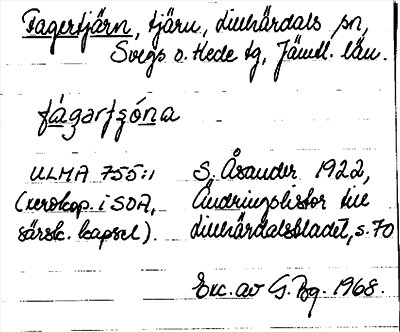 Fagertjärn, tjärn, Lillhärdals sn,
Svegs o. Hede tg, Jämtl. län.
fágartşóna
ULMA 755:1 S. Åsander 1922,
(xerokop. i SOA, Ändringslistor till
särsk. kapsel). Lillhärdalsbladet, s. 70
Exc. av G. Bg. 1968.